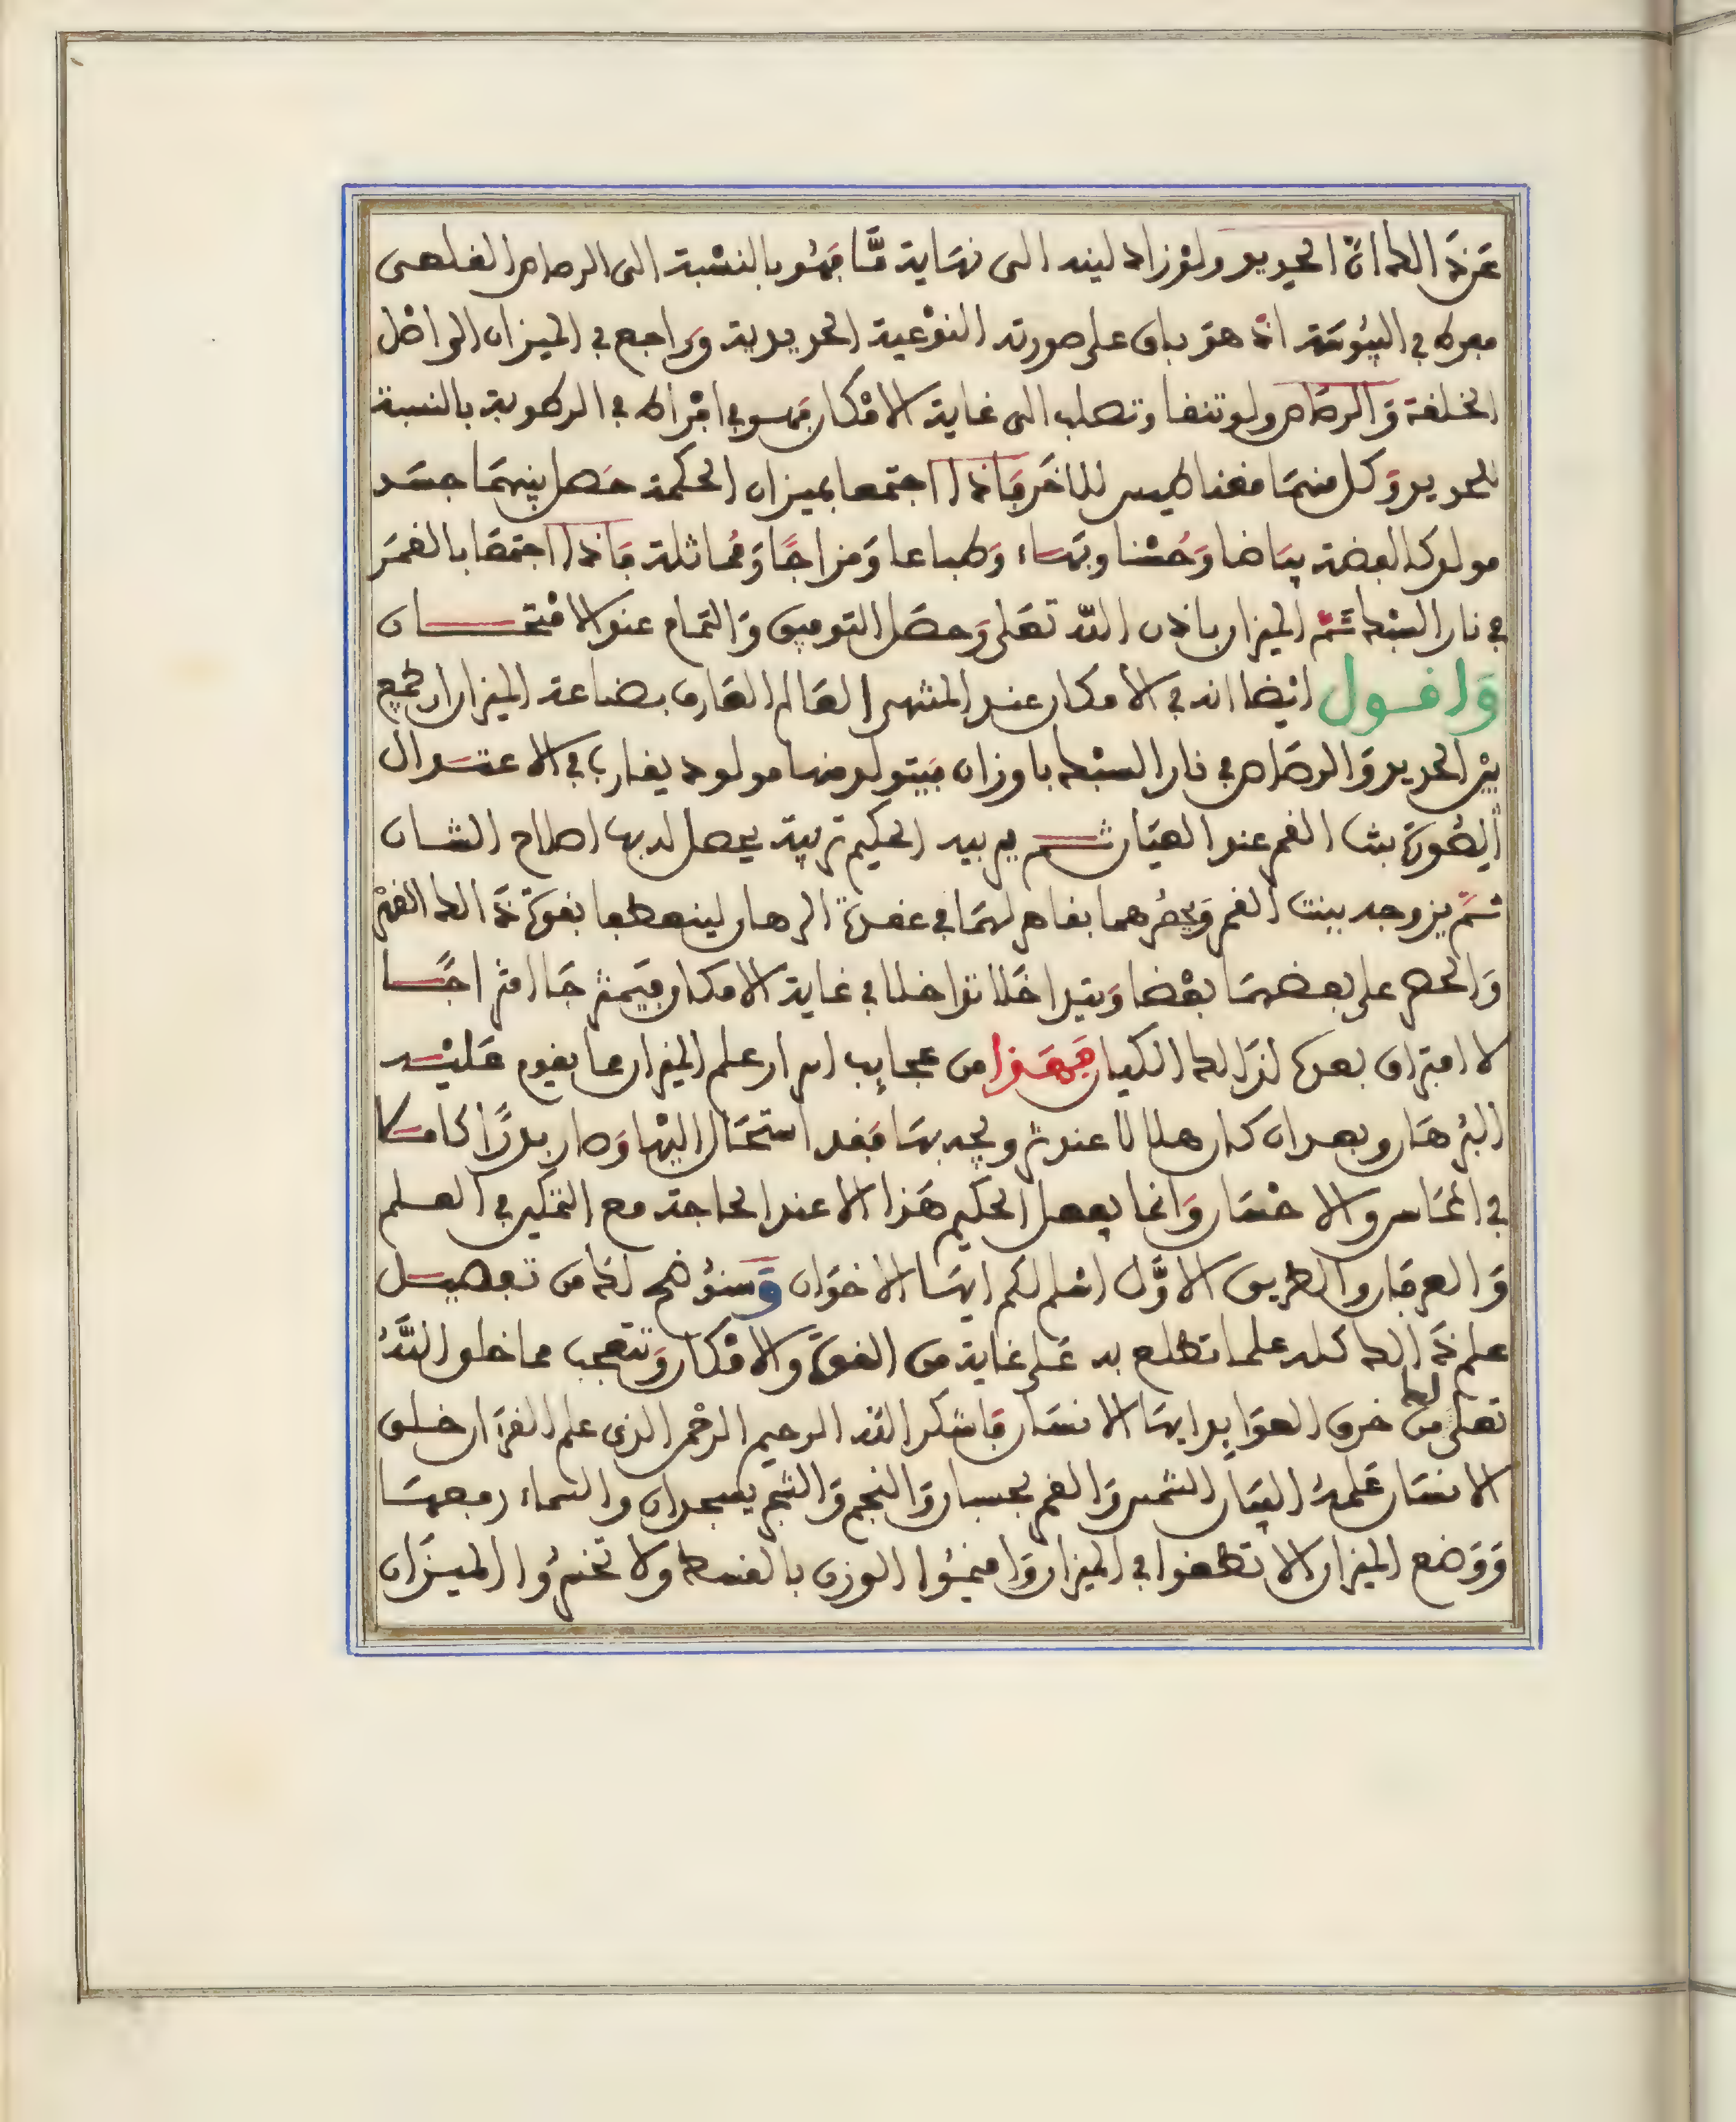 عن ذالك ان الحديد ولو زاد لينه الى نهاية ما فهو بالنسبة الى الرصاص القلعى
مفرط في اليبوسة اذ هو باق على صورته النوعية الحديدية وراجع في الميزان الى اصل
الخلقة والرصاص ولو تنقا وتصلب الى غاية الامكان فهو في افراط في الرطوبة بالنسبة
للحديد وكل منهما مغناطيس للاخر فاذا اجتمعا بميزان الحكمة حصل بينهما جسد
مولود كالفضة بياضا وحسنا وبهاء وطباعا ومزاجا ومماثلة فاذا اجتمعا بالقمر
في نار السبك تم الميزان باذن الله تعلى وحصل التوفيق والتمام عند الامتحان
واقول ايضا انه في الامكان عند المنتهى العالم العارف بصناعة الميزان ان يجمع
بين الحديد والرصاص في نار السبك باوزان فيتولد منها مولود يقارب في الاعتدال
الصورة بنت القمر عند العيان ثم يربيه الحكيم تربية يحصل لديها اصلاح الشان
ثم يزوجه ببنت القمر ويحصرهما بقاهر لهما في عقدة الرهان لينعطفا بقوة ذالك القهر
والحصر على بعضهما بعضا ويتداخلا تداخلا في غاية الامكان فيمتزجا امتزاجا
لا افتراق بعده لذالك الكيان فهذا من عجايب اسرار علم الميزان مما يقوم عليه
البرهان وبعد ان كان هلالا عند تزويجه بها فقد استحال اليها وصار بدرا كاملا
في المحاسن والاحسان وانما يفعل الحكيم هذا الا عند الحاجة مع التمكين في العلم
والعرفان والطريق الاول اسلم لكم ايها الاخوان وسنوضح لك من تفصيل
علم ذالك كله علما تطلع به على غاية من القوة والامكان وتتعجب مما خلق الله
تعلى لك من خرق العوايد ايها الانسان فاشكر الله الرحيم الرحمن الذى علم القرءان خلق
الانسان علمه البيان الشمس والقمر بحسبان والنجم والشجر يسجدان والسماء رفعها
ووضع الميزان الا تطغوا في الميزان واقيموا الوزن بالقسط ولا تخسروا الميزان